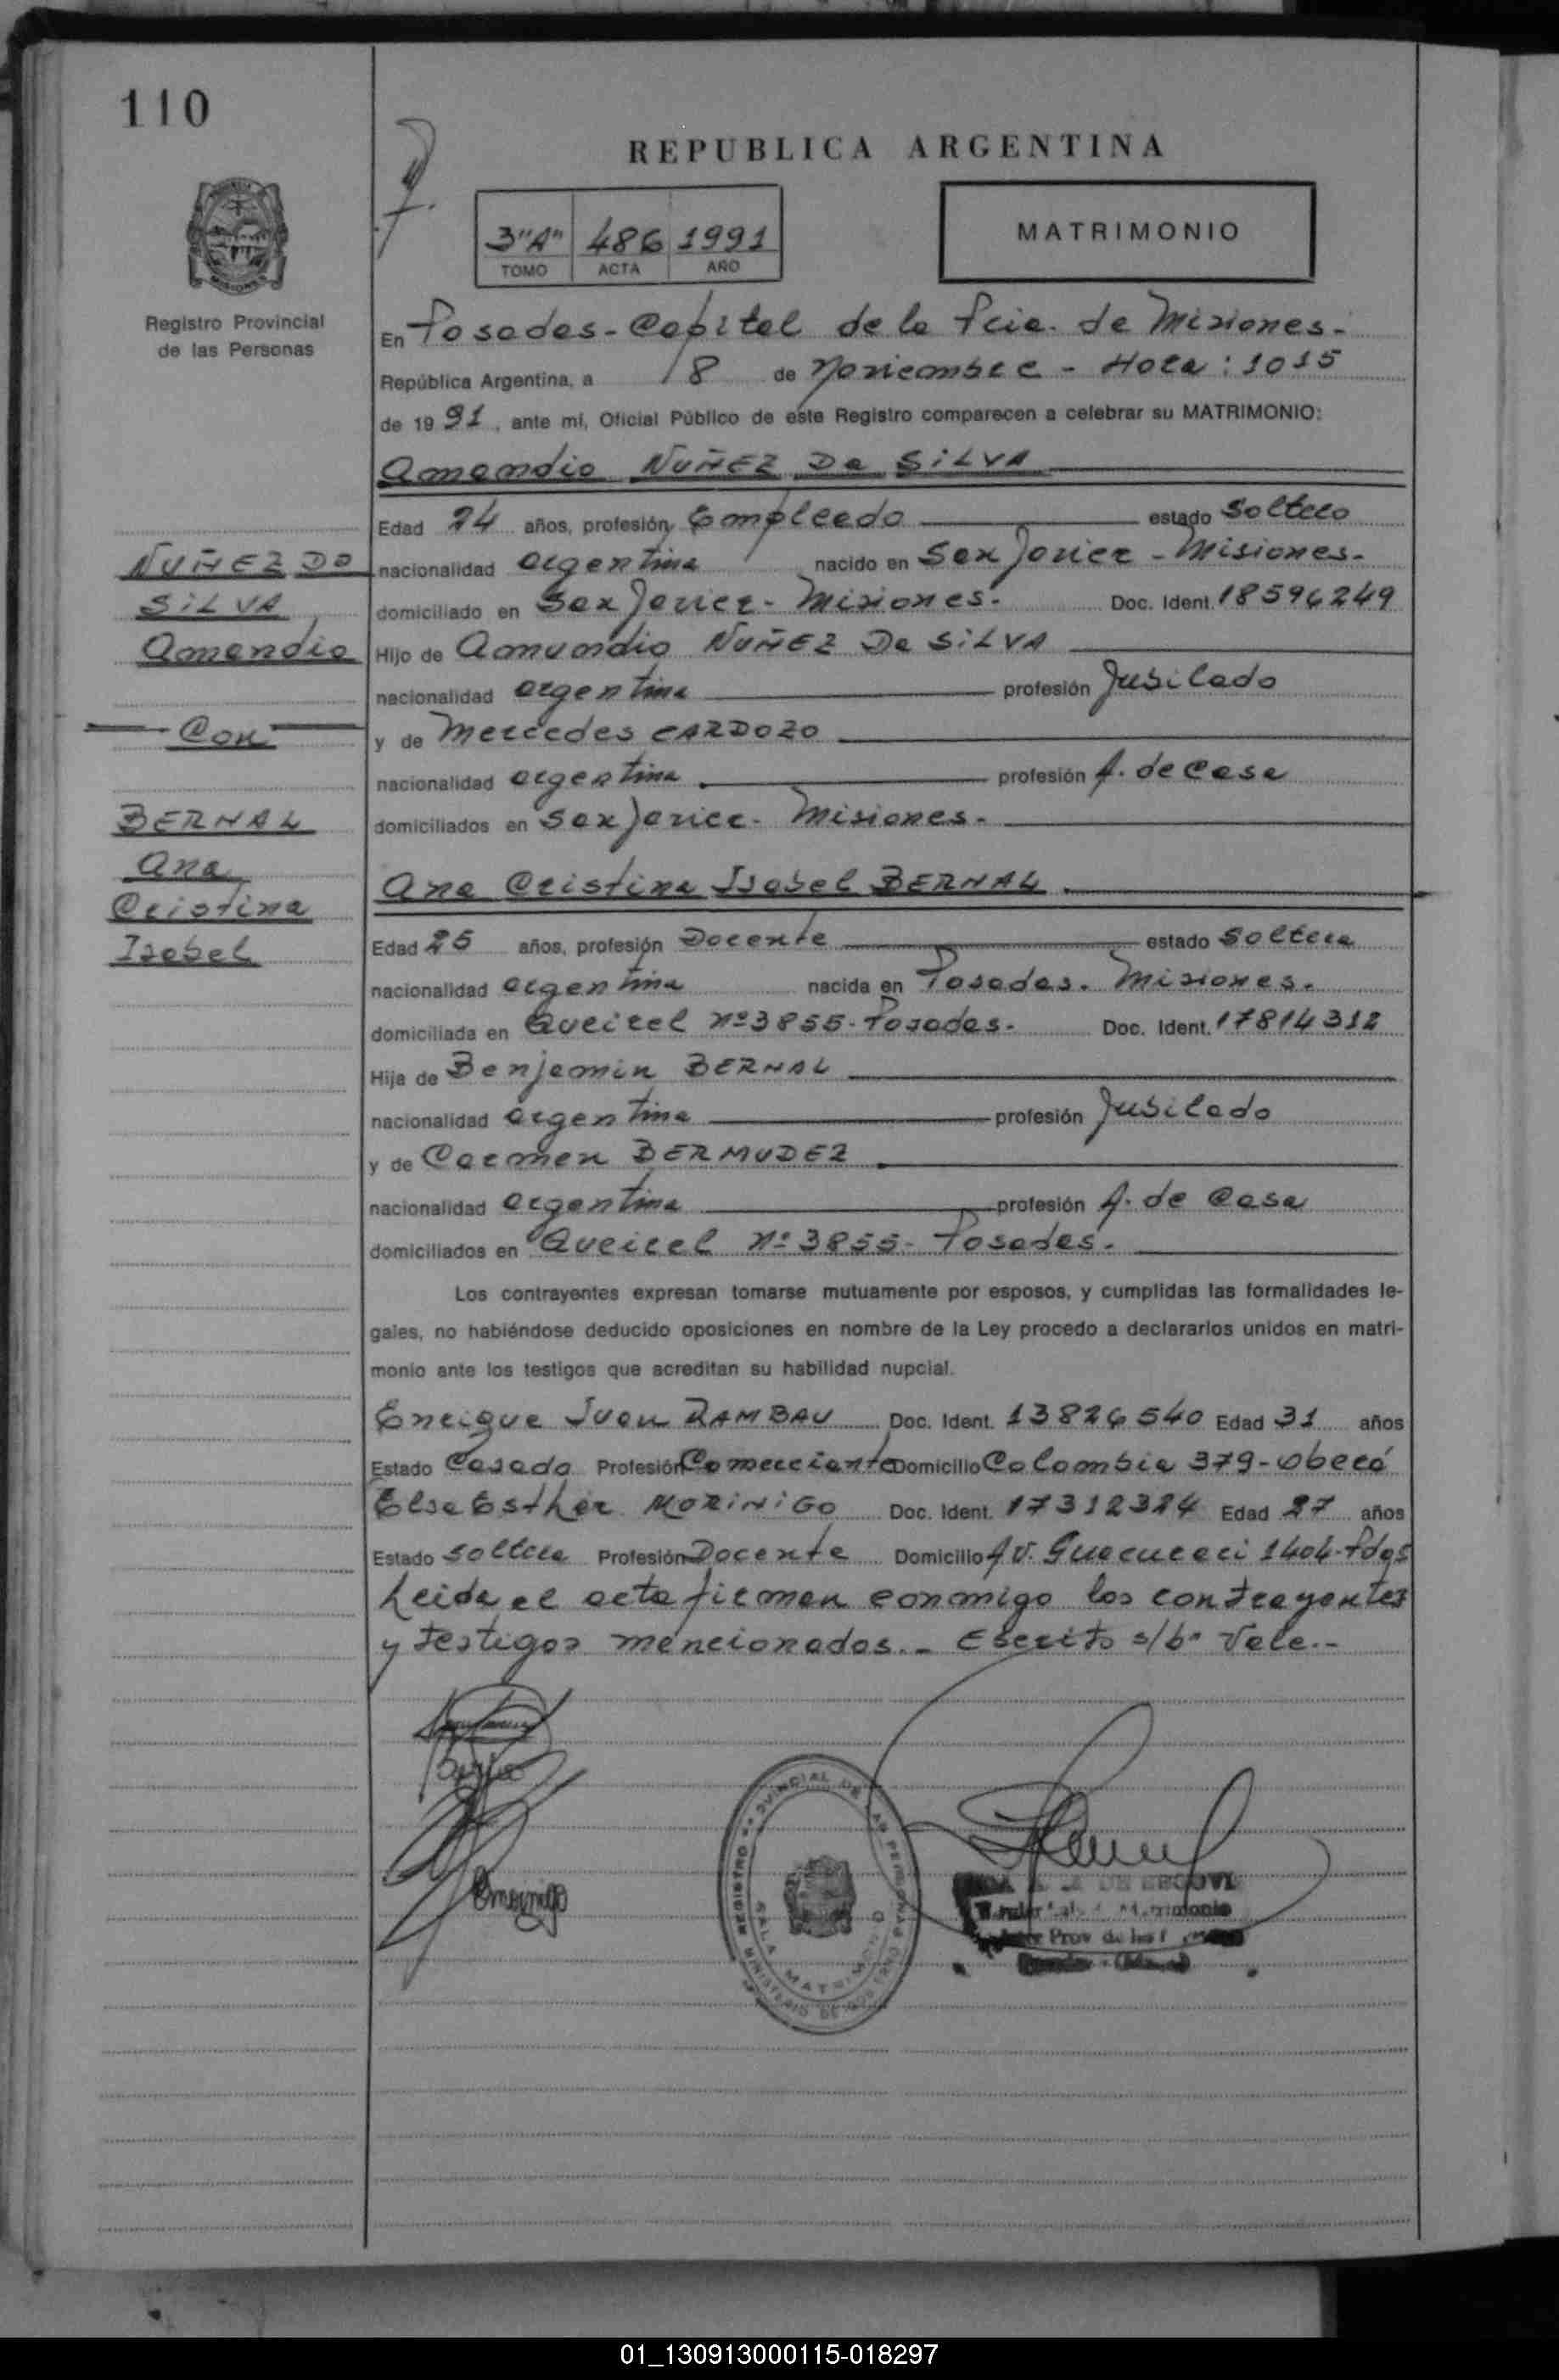 110
REPUBLICA ARGENTINA
3"A" 486 1991
TOMO ACTA AÑO
MATRIMONIO
Registro Provincial
de las Personas
En Posadas - Capital de la Pcia. de Misiones.-
República Argentina, a 8 de Noviembre - Hora: 1015
de 1991, ante mí, Oficial Público de este Registro comparecen a celebrar su MATRIMONIO:
Amandio NUÑEZ Da SiLVA
Edad 24 años, profesión Empleado estado Soltero
nacionalidad argentina nacido en San Javier - Misiones.-
domiciliado en San Javier - Misiones.- Doc. Ident. 18596249
Hijo de Amumdio NUÑEZ Da SiLVA
nacionalidad argentina profesión Jubilado
y de Mercedes CARDOZO
nacionalidad argentina profesión A. de Casa
domiciliados en San Javier - Misiones.-
NUÑEZ DO
SiLVA
Amandio
Con
BERNAL
Ana
Cristina
Isabel
Ana Cristina Isabel BERNAL
Edad 25 años, profesión Docente estado Soltera
nacionalidad argentina nacida en Posadas. Misiones.
domiciliada en Queirel Nº 3855 - Posadas.- Doc. Ident. 17814312
Hija de Benjamin BERNAL
nacionalidad argentina profesión Jubilado
y de Carmen BERMUDEZ
nacionalidad argentina profesión A. de Casa
domiciliados en Queirel Nº 3855 - Posadas.-
Los contrayentes expresan tomarse mutuamente por esposos, y cumplidas las formalidades le-
gales, no habiéndose deducido oposiciones en nombre de la Ley procedo a declararlos unidos en matri-
monio ante los testigos que acreditan su habilidad nupcial.
Enrique Juan RAMBAU Doc. Ident. 13826540 Edad 31 años
Estado Casado Profesión Comerciante Domicilio Colombia 379 - Oberá
Elsa Esther MORINiGO Doc. Ident. 17312324 Edad 27 años
Estado Soltera Profesión Docente Domicilio Av. Guacurari 1404 - Pdas
Leida el acta firman conmigo los contrayentes
y testigos mencionados.- Escrito s/bº Vale.-
REGISTRO PROVINCIAL DE LAS PERSONAS
SALA MATRIMONIO
MINISTERIO DE GOBIERNO
DE SEGOVI
Matrimonio
Prov de las
01_130913000115-018297